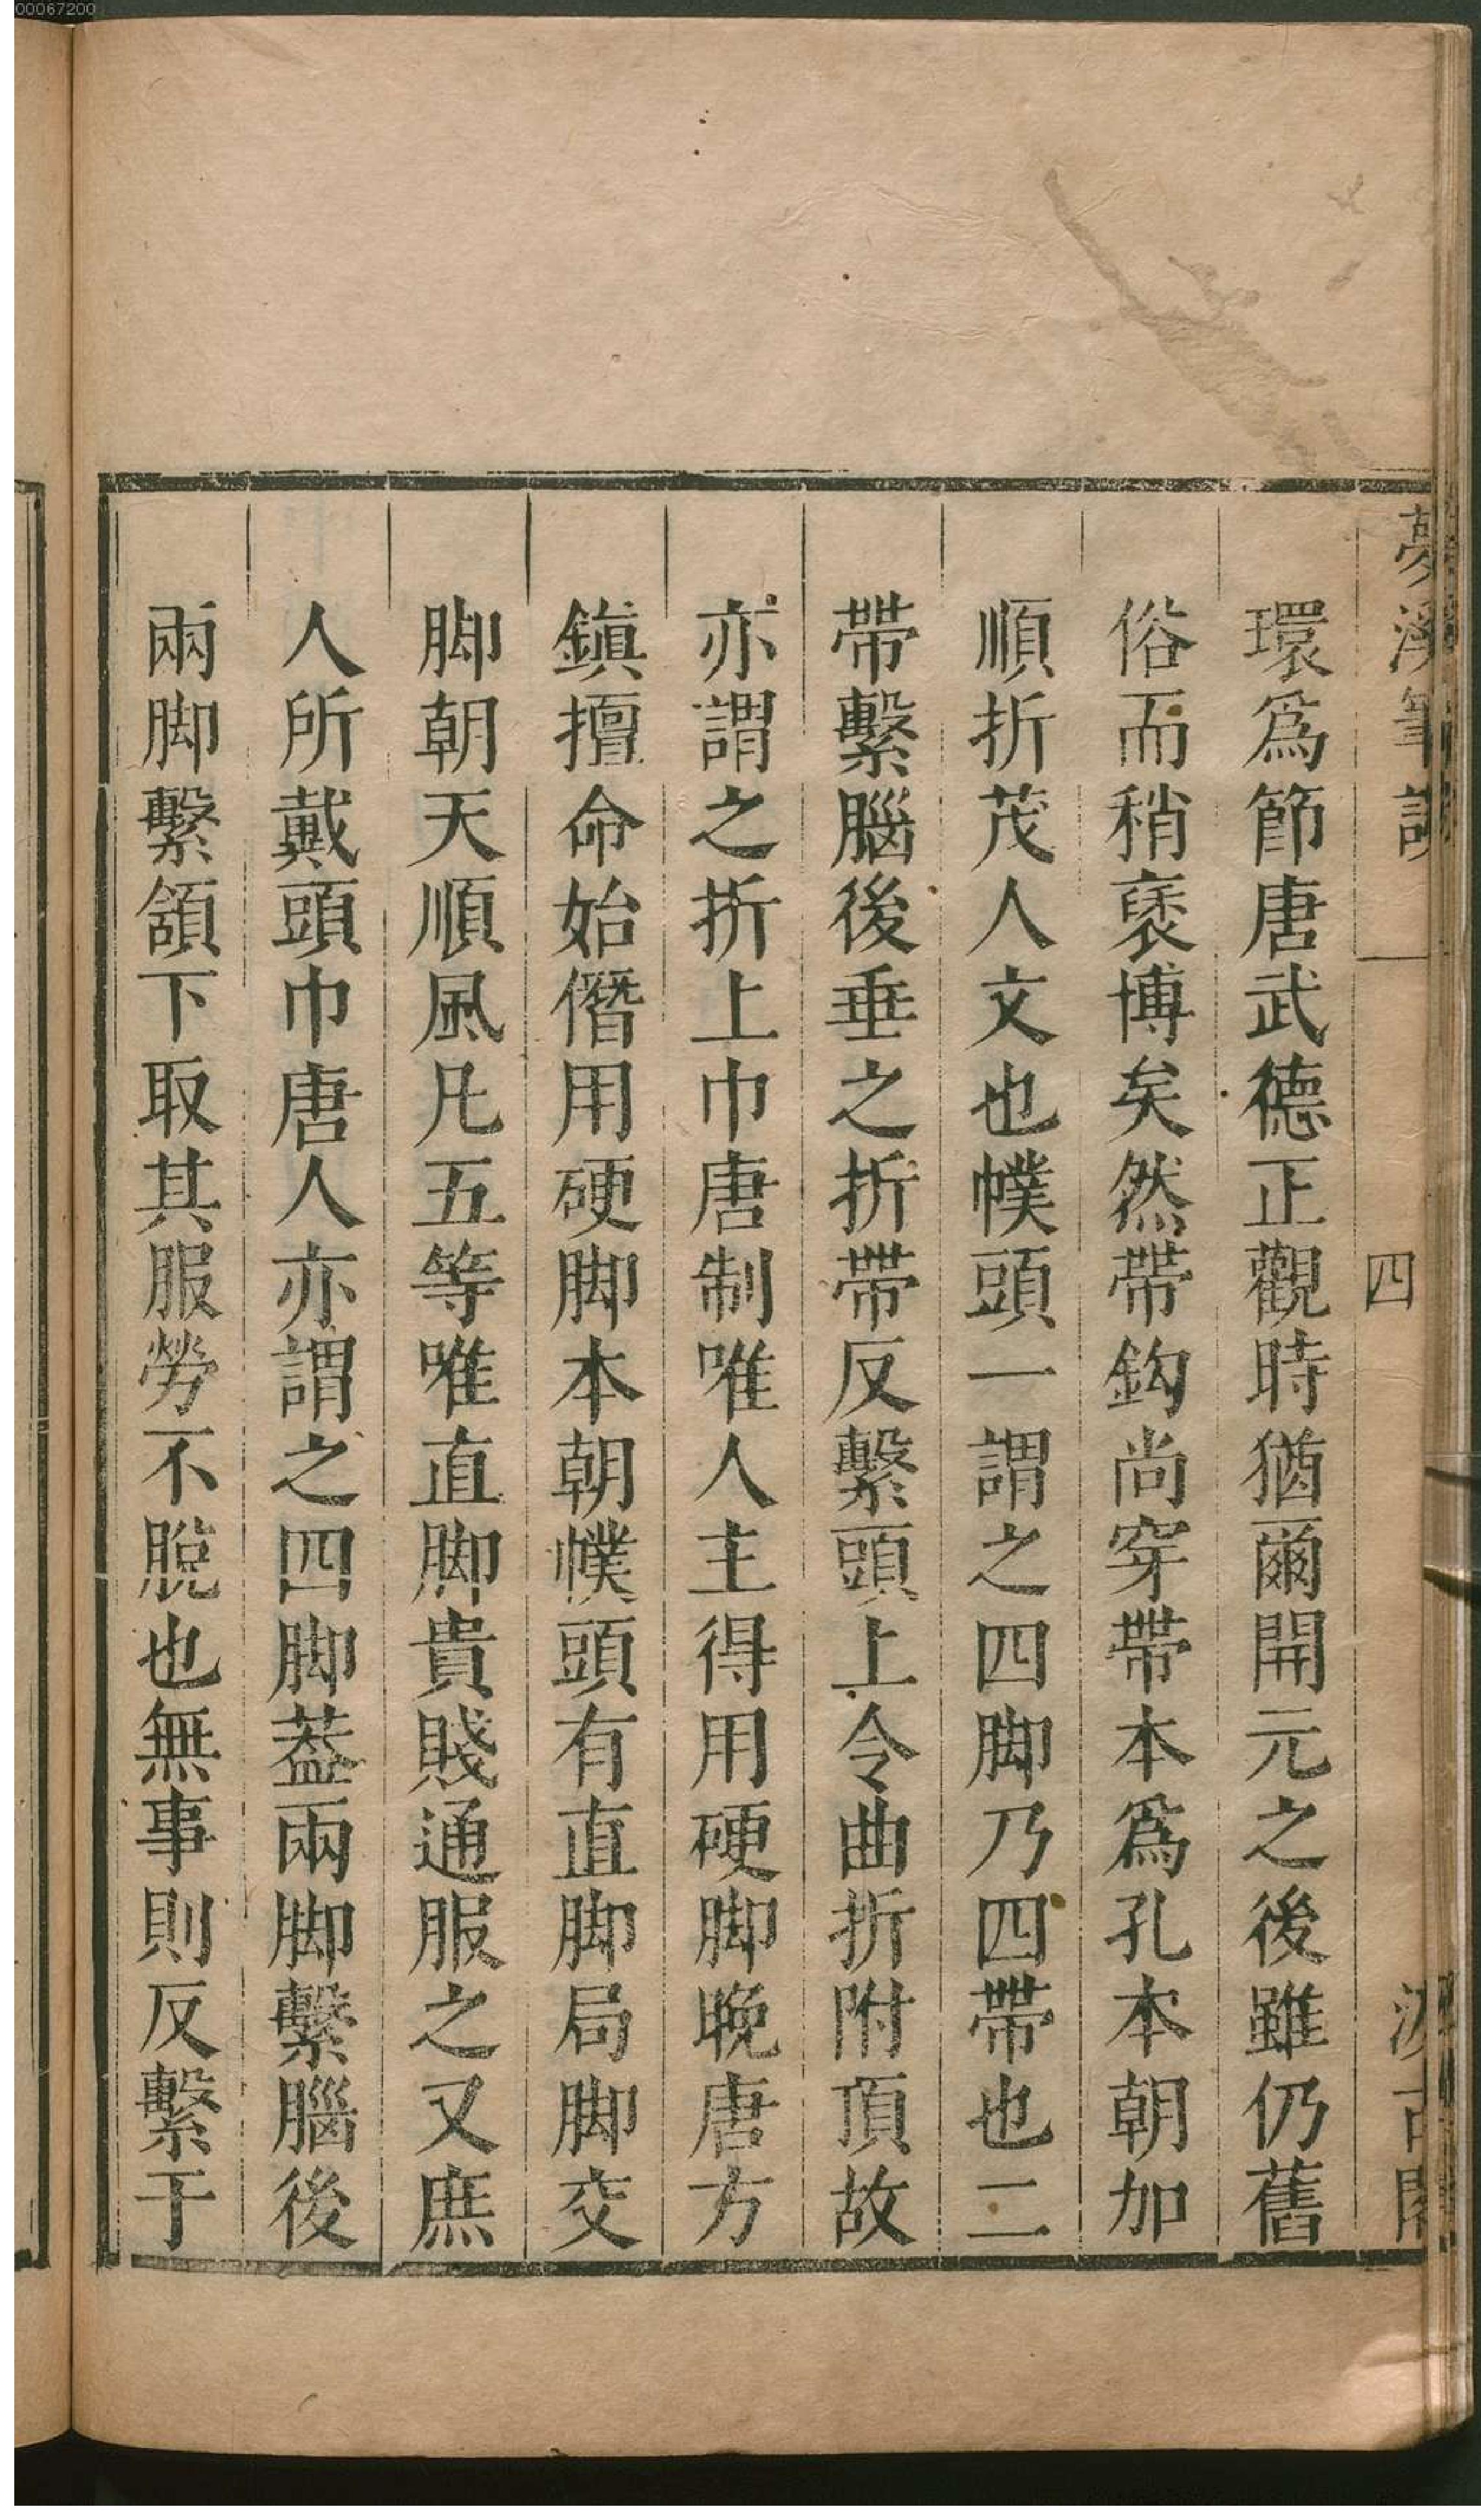 00067200
夢溪筆談
四
汲古閣
環爲節唐武德正觀時猶爾開元之後雖仍舊
俗而稍褒博矣然帶鈎尚穿帶本爲孔本朝加
順折茂人文也幞頭一謂之四脚乃四帶也二
帶繫腦後垂之折帶反繫頭上令曲折附頂故
亦謂之折上巾唐制唯人主得用硬脚晚唐方
鎮擅命始僭用硬脚本朝幞頭有直脚局脚交
脚朝天順風凡五等唯直脚貴賤通服之又庶
人所戴頭巾唐人亦謂之四脚葢兩脚繫腦後
兩脚繫頷下取其服勞不脫也無事則反繫于